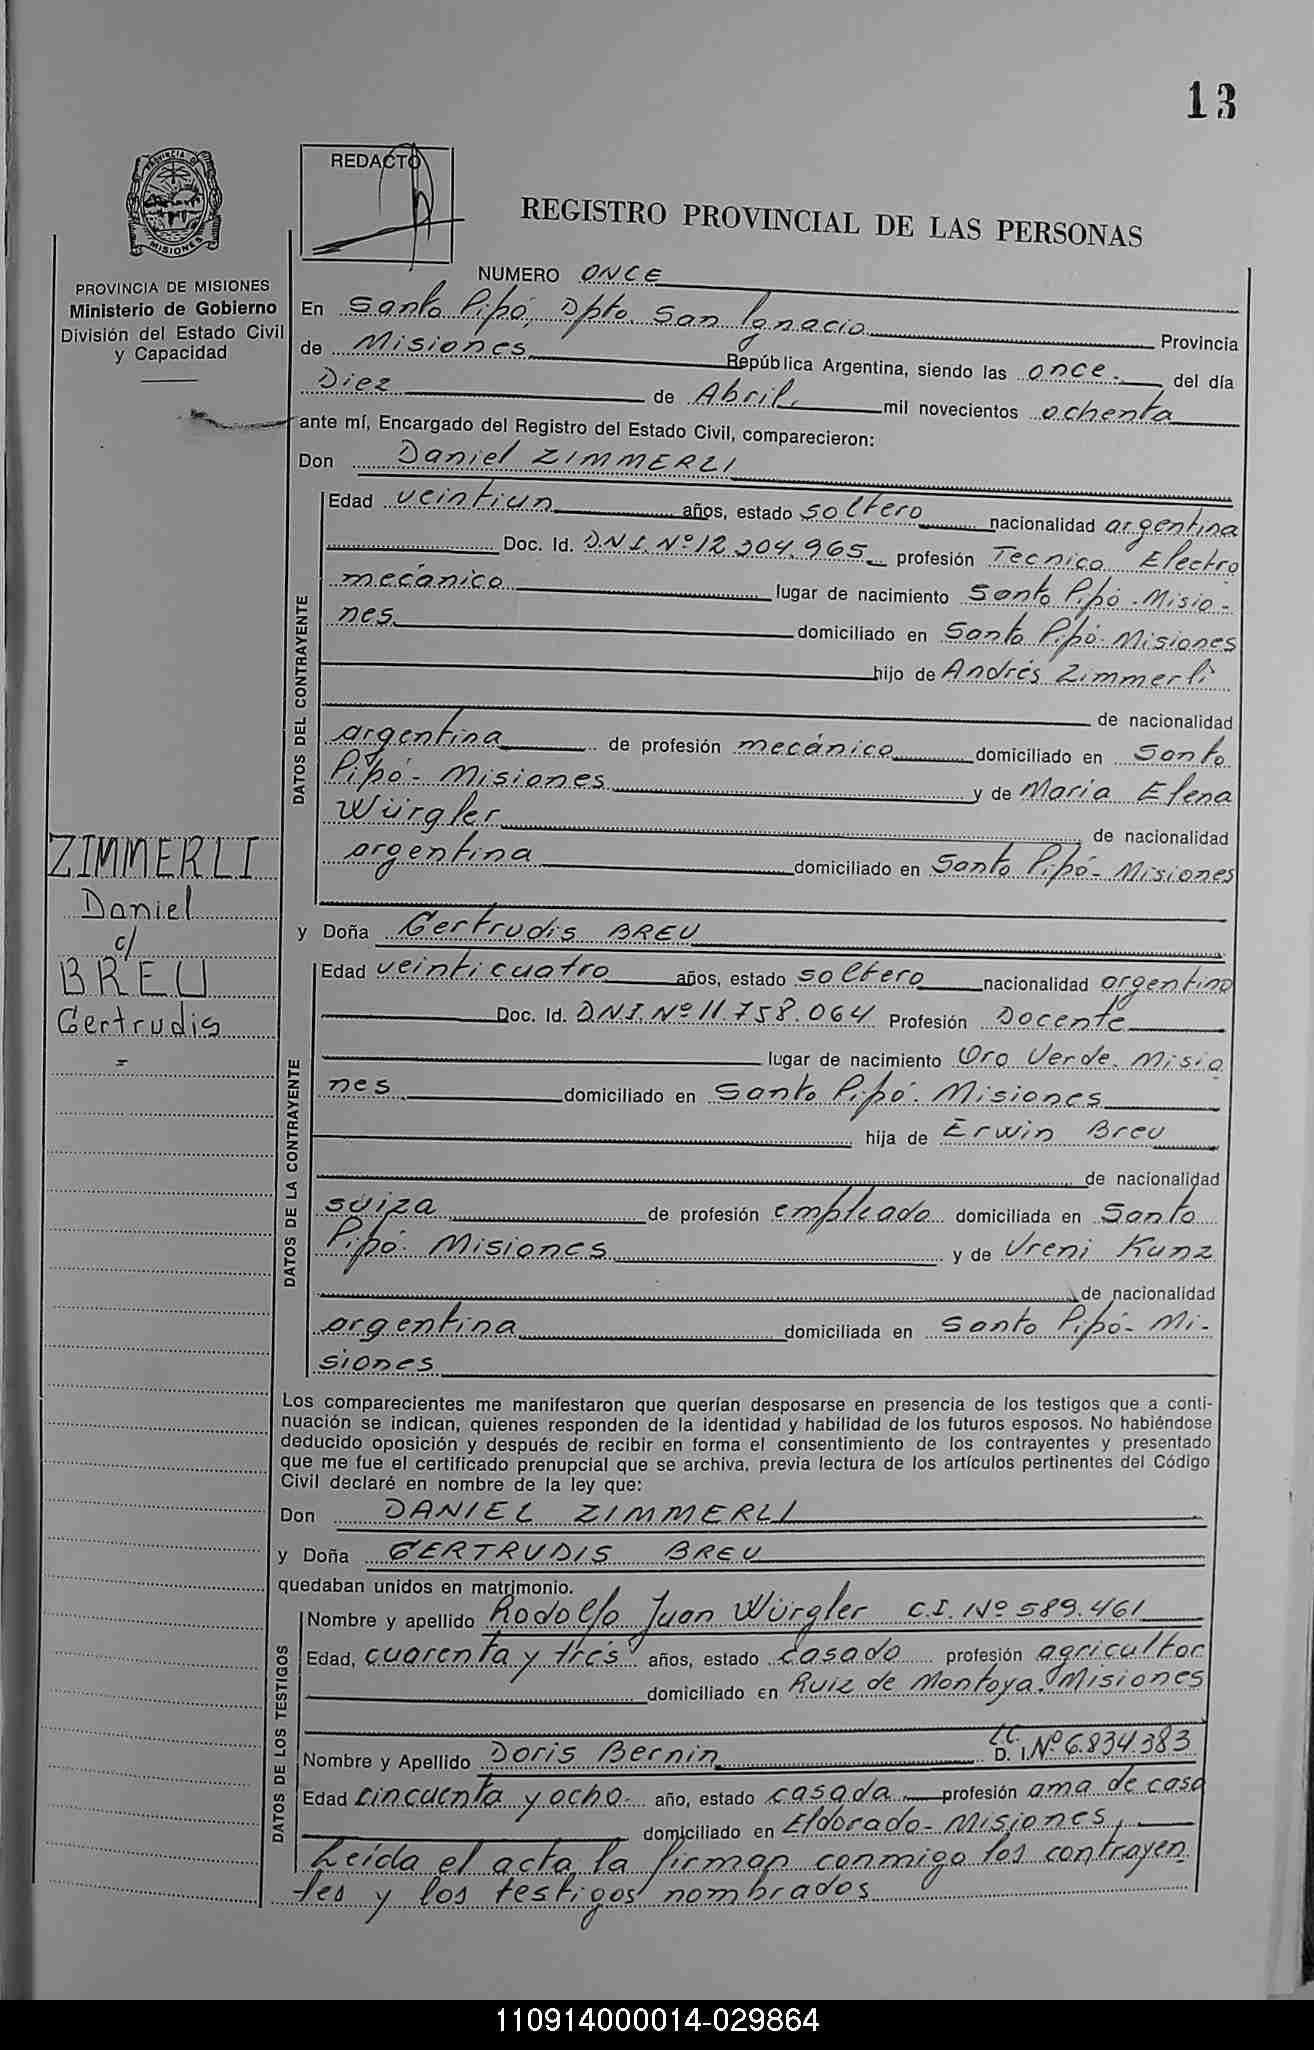 13
REDACTO
REGISTRO PROVINCIAL DE LAS PERSONAS
PROVINCIA DE MISIONES
Ministerio de Gobierno
División del Estado Civil
y Capacidad
NUMERO ONCE
En Santo Pipó, Dpto San Ignacio Provincia
de Misiones República Argentina, siendo las once. del día
Diez de Abril, mil novecientos ochenta
ante mí, Encargado del Registro del Estado Civil, comparecieron:
Don Daniel ZIMMERLI
DATOS DEL CONTRAYENTE
Edad veintiun años, estado soltero nacionalidad argentina
Doc. Id. D.N.I. Nº 12.304.965 profesión Tecnico Electro
mecánico lugar de nacimiento Santo Pipó - Misio-
nes domiciliado en Santo Pipó - Misiones
hijo de Andrés Zimmerli
de nacionalidad
argentina de profesión mecánico domiciliado en Santo
Pipó - Misiones y de Maria Elena
Würgler de nacionalidad
argentina domiciliado en Santo Pipó - Misiones
ZIMMERLI
Daniel
c/
BREU
Gertrudis
=
y Doña Gertrudis BREU
DATOS DE LA CONTRAYENTE
Edad veinticuatro años, estado soltero nacionalidad argentina
Doc. Id. D.N.I. Nº 11.758.064 Profesión Docente
lugar de nacimiento Oro Verde. Misio
nes domiciliado en Santo Pipó. Misiones
hija de Erwin Breu
de nacionalidad
suiza de profesión empleado domiciliada en Santo
Pipó. Misiones y de Ureni Kunz
de nacionalidad
argentina domiciliada en Santo Pipó - Mi-
siones
Los comparecientes me manifestaron que querían desposarse en presencia de los testigos que a conti-
nuación se indican, quienes responden de la identidad y habilidad de los futuros esposos. No habiéndose
deducido oposición y después de recibir en forma el consentimiento de los contrayentes y presentado
que me fue el certificado prenupcial que se archiva, previa lectura de los artículos pertinentes del Código
Civil declaré en nombre de la ley que:
Don DANIEL ZIMMERLI
y Doña GERTRUDIS BREU
quedaban unidos en matrimonio.
DATOS DE LOS TESTIGOS
Nombre y apellido Rodolfo Juan Würgler C.I. Nº 589.461
Edad, cuarenta y trés años, estado casado profesión agricultor
domiciliado en Ruiz de Montoya. Misiones
Nombre y Apellido Doris Bernin L.C. D. I. Nº 6.834.383
Edad cincuenta y ocho. año, estado casada profesión ama de casa
domiciliado en Eldorado - Misiones,
Leída el acta la firman conmigo los contrayen
tes y los testigos nombrados
110914000014-029864